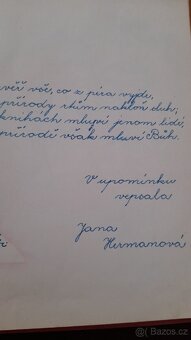 věř víc, co z píra vyjde,
přírody rkům nakloň duh;
knihách mluví jenom lidé
přírodě však mluví Bůh.
V upomínku
vepsala
Jana
Hermanová
Bazos.cz